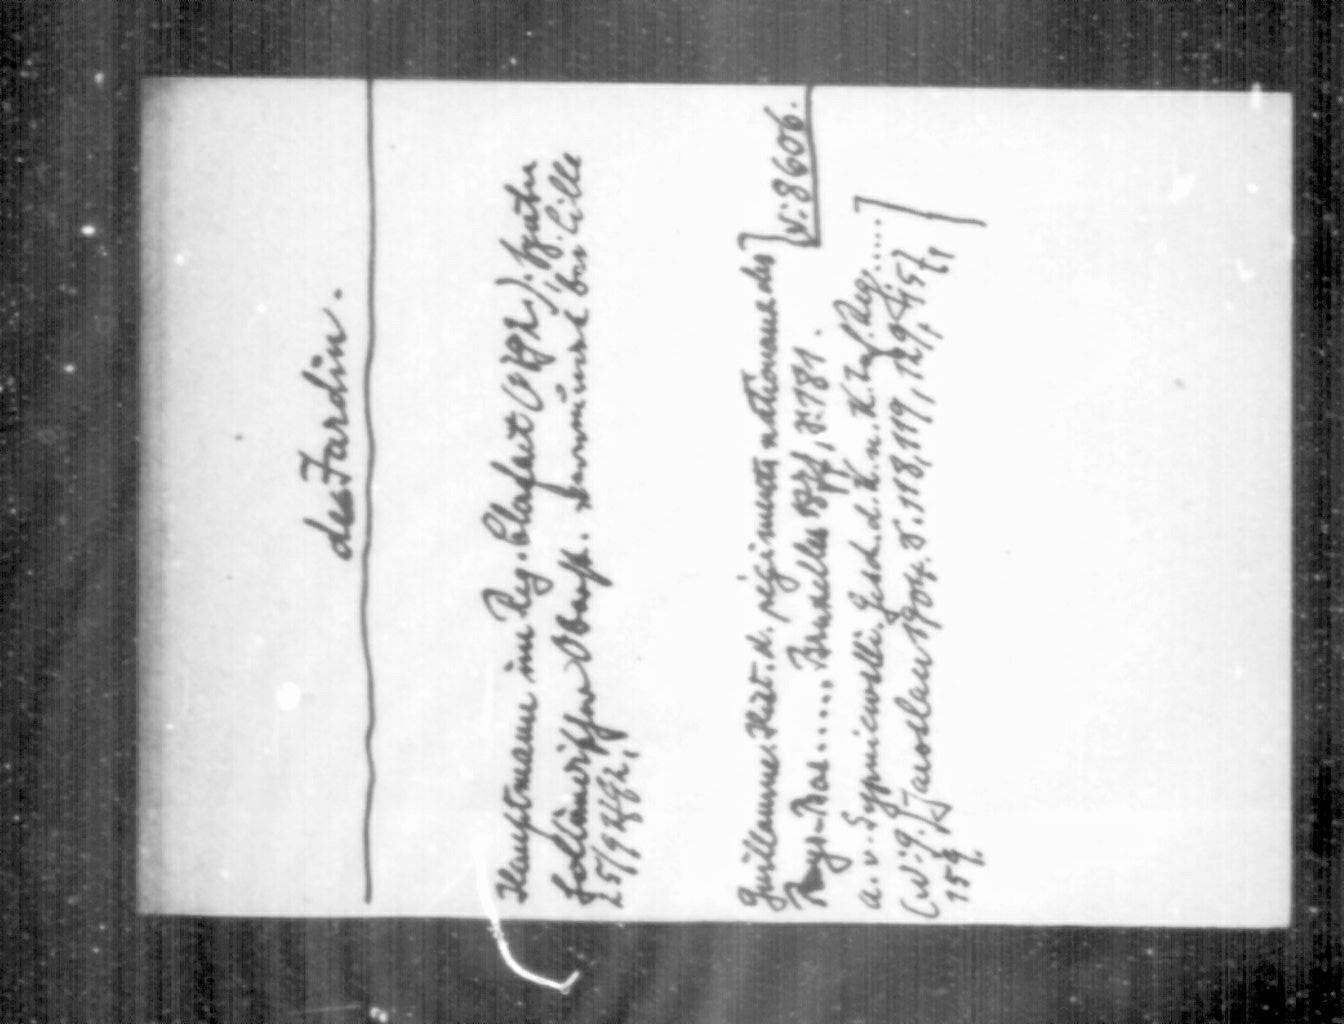 des Jardin.
Hauptmann im Reg. Clafait (1792); später
holländischer Oberst. bei Lille
25/9 1792,
Guillaume Hist. d. régiments nationaux des
Pays-Bas..... Bruxelles 1877, S. 181.
N: 8606.
a. v. Sypniewski: Gesch. d. K. u. K. Inf. Reg......
(N: 9.) Jaroslau 1904. S. 118, 119, 129,
159.